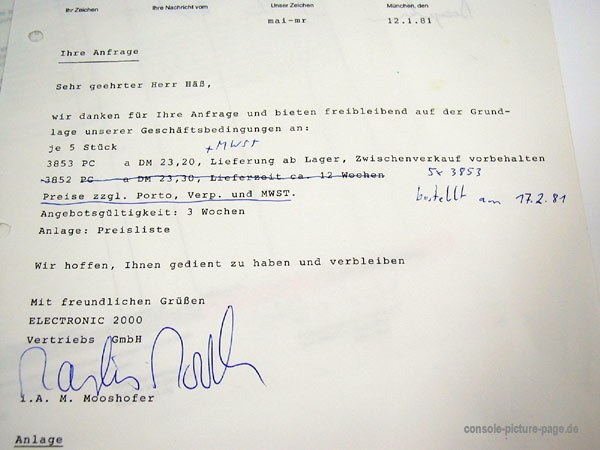 Ihr Zeichen Ihre Nachricht vom Unser Zeichen München, den
mai-mr 12.1.81
Ihre Anfrage
Sehr geehrter Herr Häß,
wir danken für Ihre Anfrage und bieten freibleibend auf der Grund-
lage unserer Geschäftsbedingungen an:
je 5 Stück + MWSt
3853 PC a DM 23,20, Lieferung ab Lager, Zwischenverkauf vorbehalten
3852 PC a DM 23,30, Lieferzeit ca. 12 Wochen 5x 3853
Preise zzgl. Porto, Verp. und MWST. bestellt am 17.2.81
Angebotsgültigkeit: 3 Wochen
Anlage: Preisliste
Wir hoffen, Ihnen gedient zu haben und verbleiben
Mit freundlichen Grüßen
ELECTRONIC 2000
Vertriebs GmbH
i.A. M. Mooshofer
Anlage
console-picture-page.de